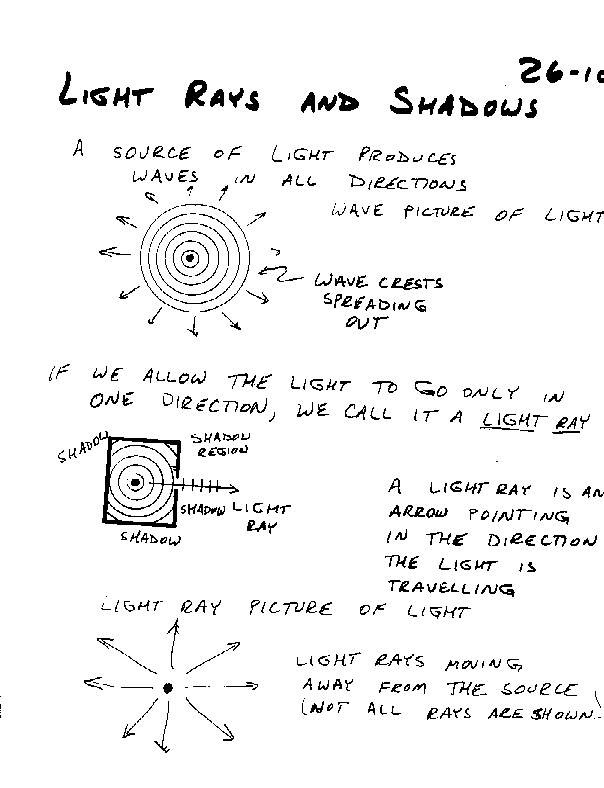 26-10
LIGHT RAYS AND SHADOWS
A SOURCE OF LIGHT PRODUCES
WAVES IN ALL DIRECTIONS
WAVE PICTURE OF LIGHT
WAVE CRESTS
SPREADING
OUT
IF WE ALLOW THE LIGHT TO GO ONLY IN
ONE DIRECTION, WE CALL IT A LIGHT RAY
SHADOW
SHADOW
REGION
SHADOW
LIGHT
RAY
SHADOW
A LIGHT RAY IS AN
ARROW POINTING
IN THE DIRECTION
THE LIGHT IS
TRAVELLING
LIGHT RAY PICTURE OF LIGHT
LIGHT RAYS MOVING
AWAY FROM THE SOURCE
(NOT ALL RAYS ARE SHOWN.